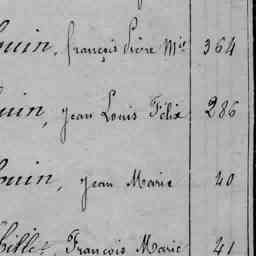 ouin, françois Pière M.ie 364
uin, Jean Louis Félix 286
ouin, Jean Marie 40
hillet, François Marie 41